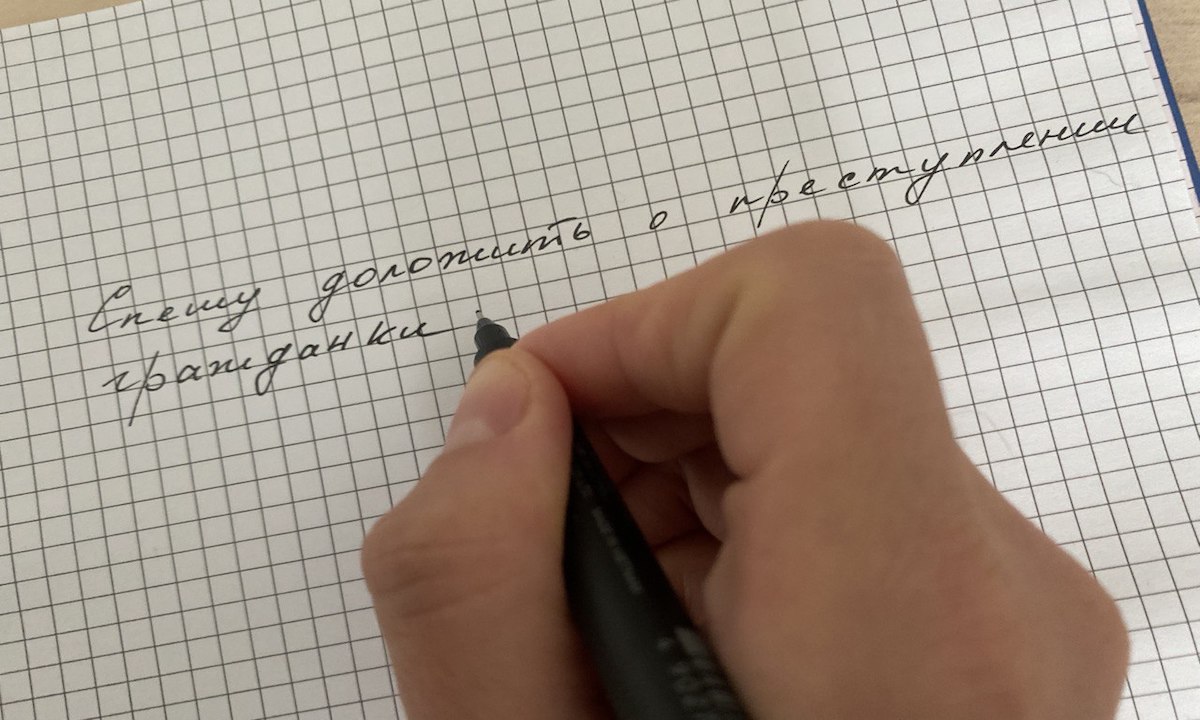 Спешу доложить о преступлении
гражданки